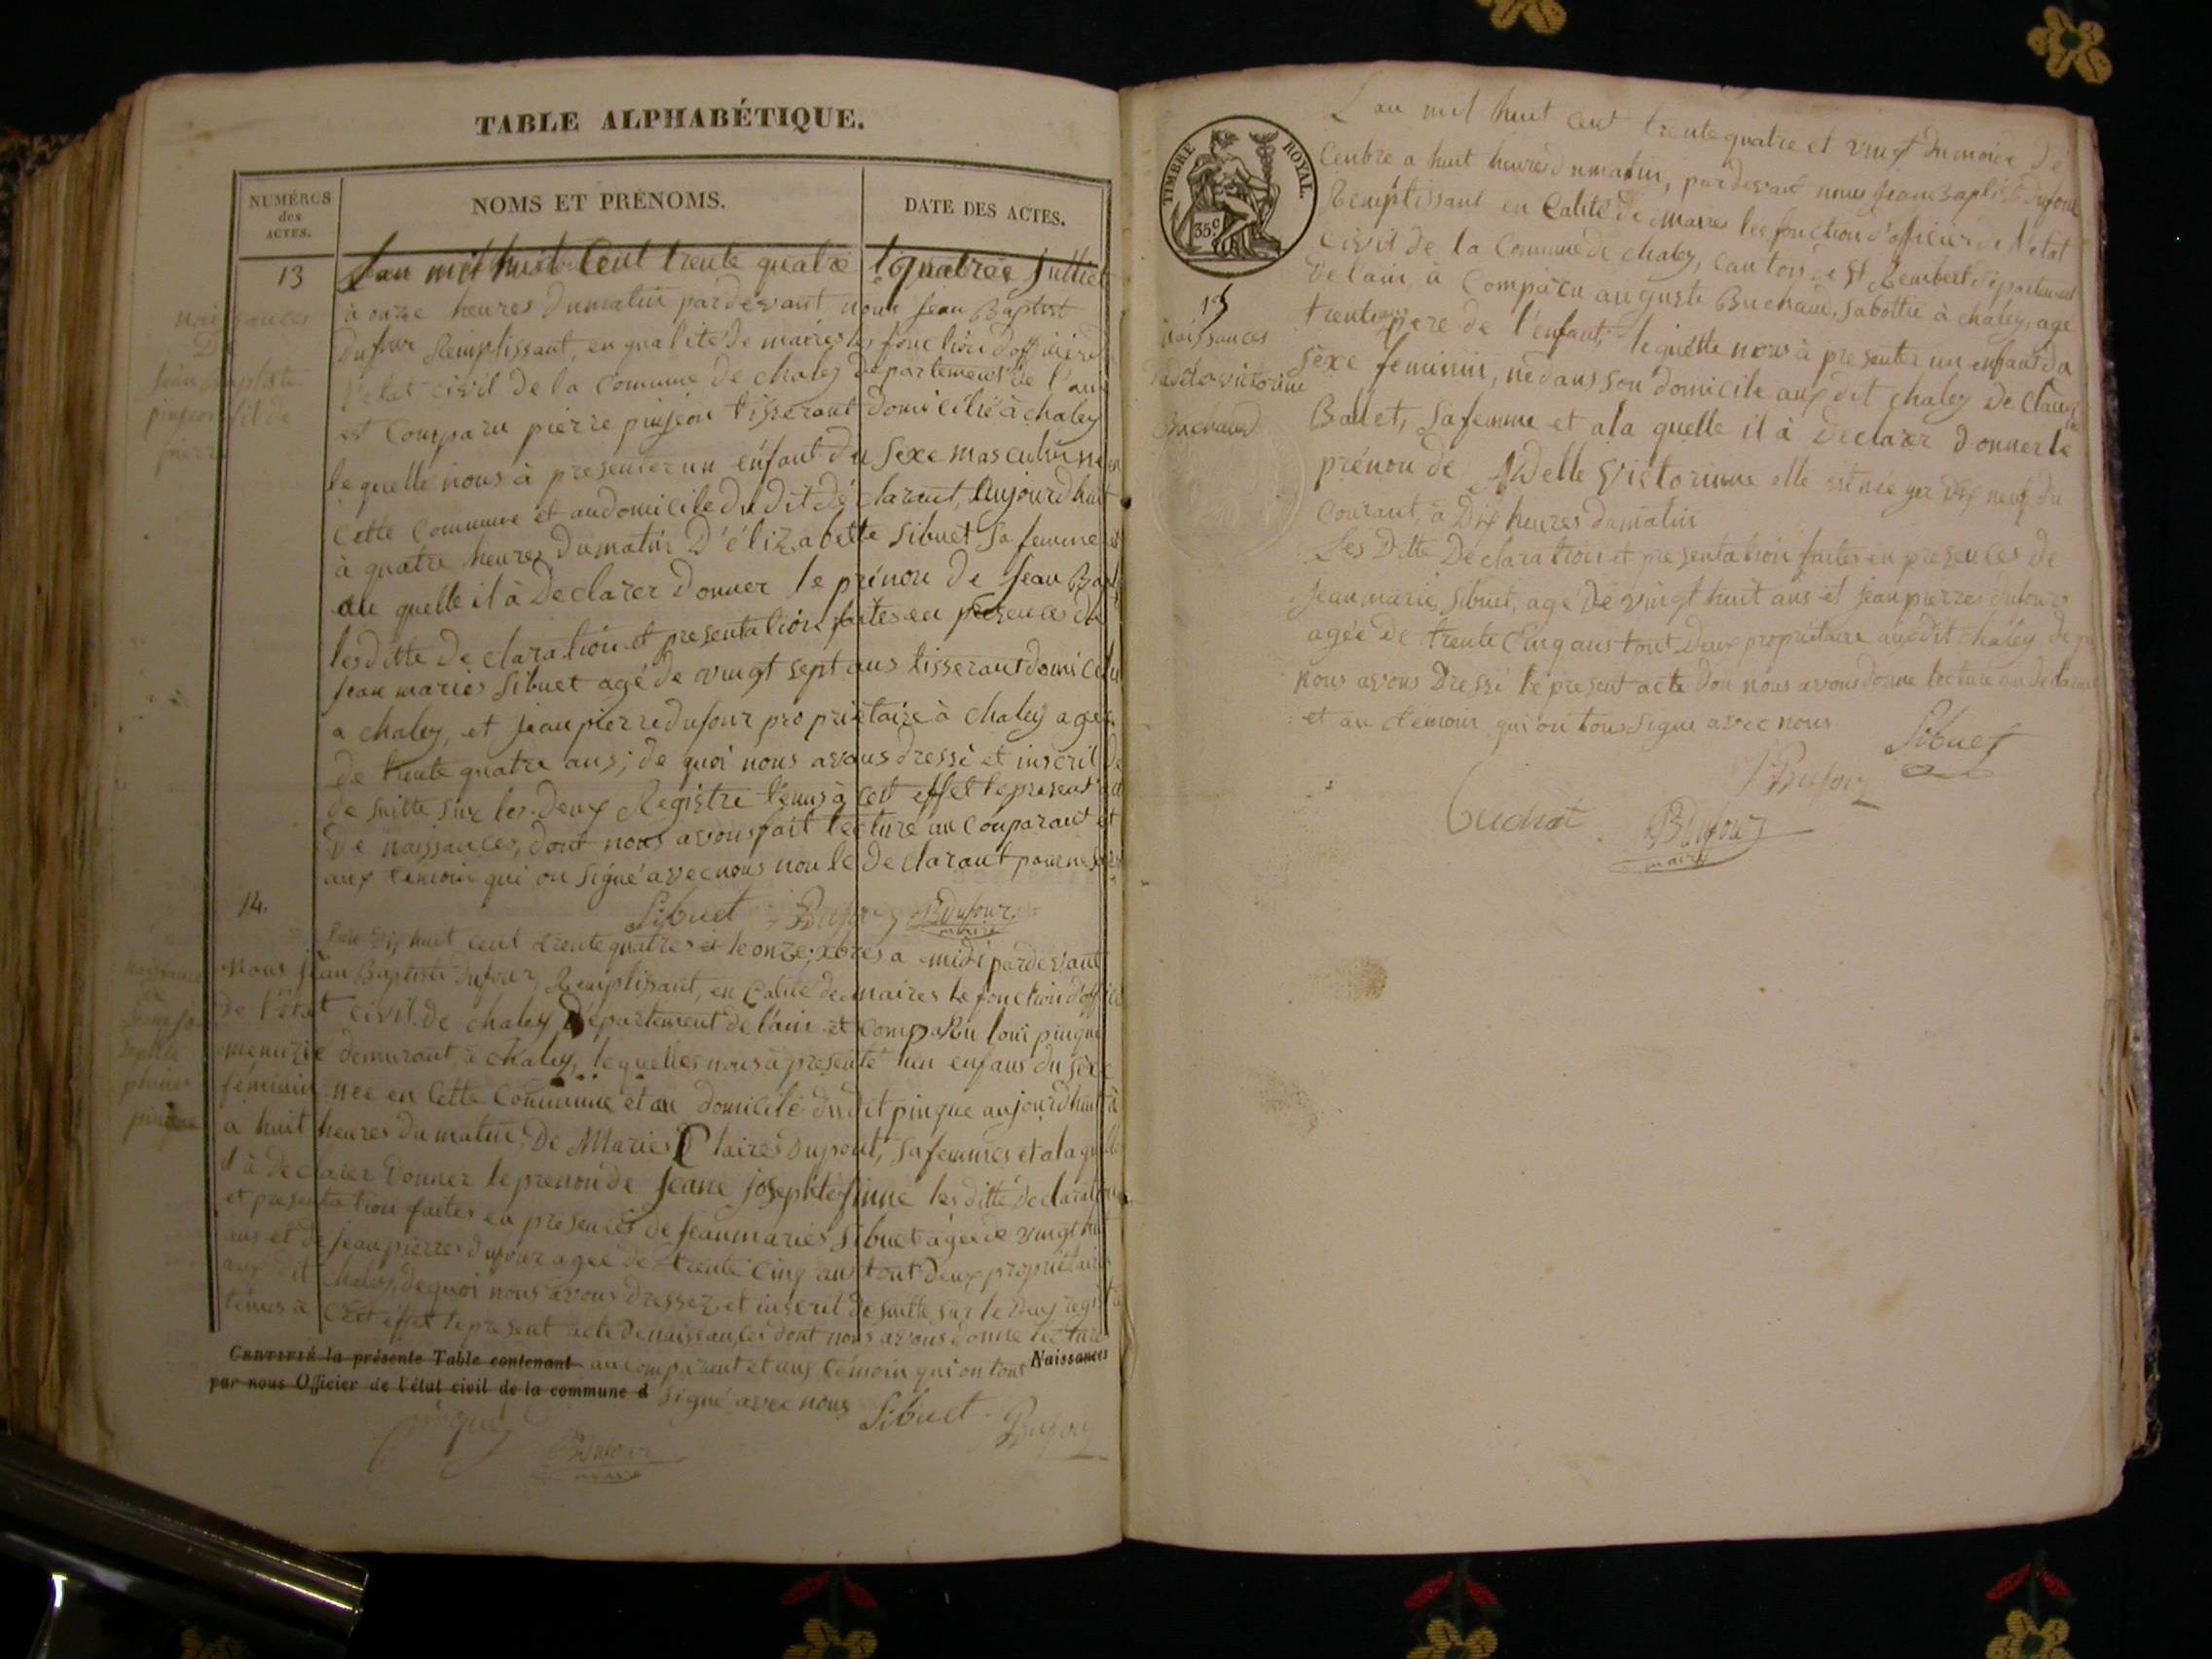 TABLE ALPHABÉTIQUE.
NUMÉROS
des
ACTES.
NOMS ET PRÉNOMS.
DATE DES ACTES.
13
L'an mil huit Cent trente quatre le quatree juilliet
à onze heures du matin pardevant nous Jean Baptist
dufour Remplissant, en qualité de maires les fonction d'officier de
l'etat civil de la Comune de chaley departement de l'ain
est Comparu pierre pinjeon tisserant domicilié à chaley
le quelle nous à presenter un enfant du sexe masculin né en
cette Commune et au domicile du dit déclarant, aujourdhuit
à quatre heures du matin D'élizabette Sibuet sa femme et
au quelle il à Declarer Donner le prénon de Jean Bapt
lesditte declaration et presentation faites en presences de
Jean maries Sibuet agé de vingt sept ans tisserant domicilié
a chaley, et jean pierre dufour propriétaire à chaley agée
de trente quatre ans; de quoi nous avons dressé et inscrit de
de suitte sur les deux Registre tenus à cest effet le present act
De naissances, dont nous avons fait lecture au Conparant et
aux temoin qui on signé avec nous non le declarant pour ne
naissances
De
Jean Baptiste
pinjeon fil de
pierre
Sibuet Dufour BDufour
maire
14.
L'an dix huit cent trente quatres et le onze xbres a midi pardevant
nous jean Baptiste dufour, Remplissant, en Calité de maires le fonction d'officier
de l'état civil de chaley Département de l'ain et compaRu loui pinque
menuzié demurant à chaley, le quelles nous à presenté un enfans du sexe
féminin née en Cette Commune et au domicile dudit pinque aujourdhuit à
a huit heures du matin, De Maries Claires Dupont, sa femmes et a la quelle
il à declarer Donner le prenon de Jeane josephtefinne les ditte declaration
et presentation faites en presences de Jean maries Sibuet agée de vingt huit
ans et de Jean pierres dufour agée de trente cinq ans tout deux propriétaires
aux dit chaley, de quoi nous avons dressez et inscrit de suitte sur le deux registre
tenus a Cest effet le present acte de naissances dont nous avons donne lecture
CERTIFIÉ la présente Table contenant au comparant et aux témoin qui on tous Naissances
par nous Officier de l'état civil de la commune d signé avec nous
naissance
pinque
Sibuet Dufour
pinque
BDufour
maire
TIMBRE ROYAL.
359
L'an mil huit cent trente quatre et vingt du mois de
Cenbre a huit heures du matin, pardevant nous jean Baptiste Dufour
Remplissant en Calité de maires les fonction d'officier de l'etat
Civil de la Commune de chaley, canton de St Rembert département
de l'ain, à Comparu auguste Buchaud, sabottie à chaley, agé
trente pere de l'enfant, le quelle nous à presenter un enfant du
sexe feminin, né dans son domicile aux dit chaley De Claudi
Ballet, sa femme et a la quelle il à Declarer Donner le
prénon de Addelle Victorinne elle est née yer Dix neuf du
Courant, à Dix heures du matin
Les Ditte Declaration et presentation faites en presences de
Jean marie Sibuet, agé De vingt huit ans et jean pierres dufour
agée de trente cinq ans tout deux propriétaire aux dit chaley de quoi
nous avons Dressé le present acte don nous avons donne lecture au declarant
et au temoin qui on tous signe avec nous
15
naissances
Buchaud
Sibuet
Dufour
Buchat
BDufour
maire